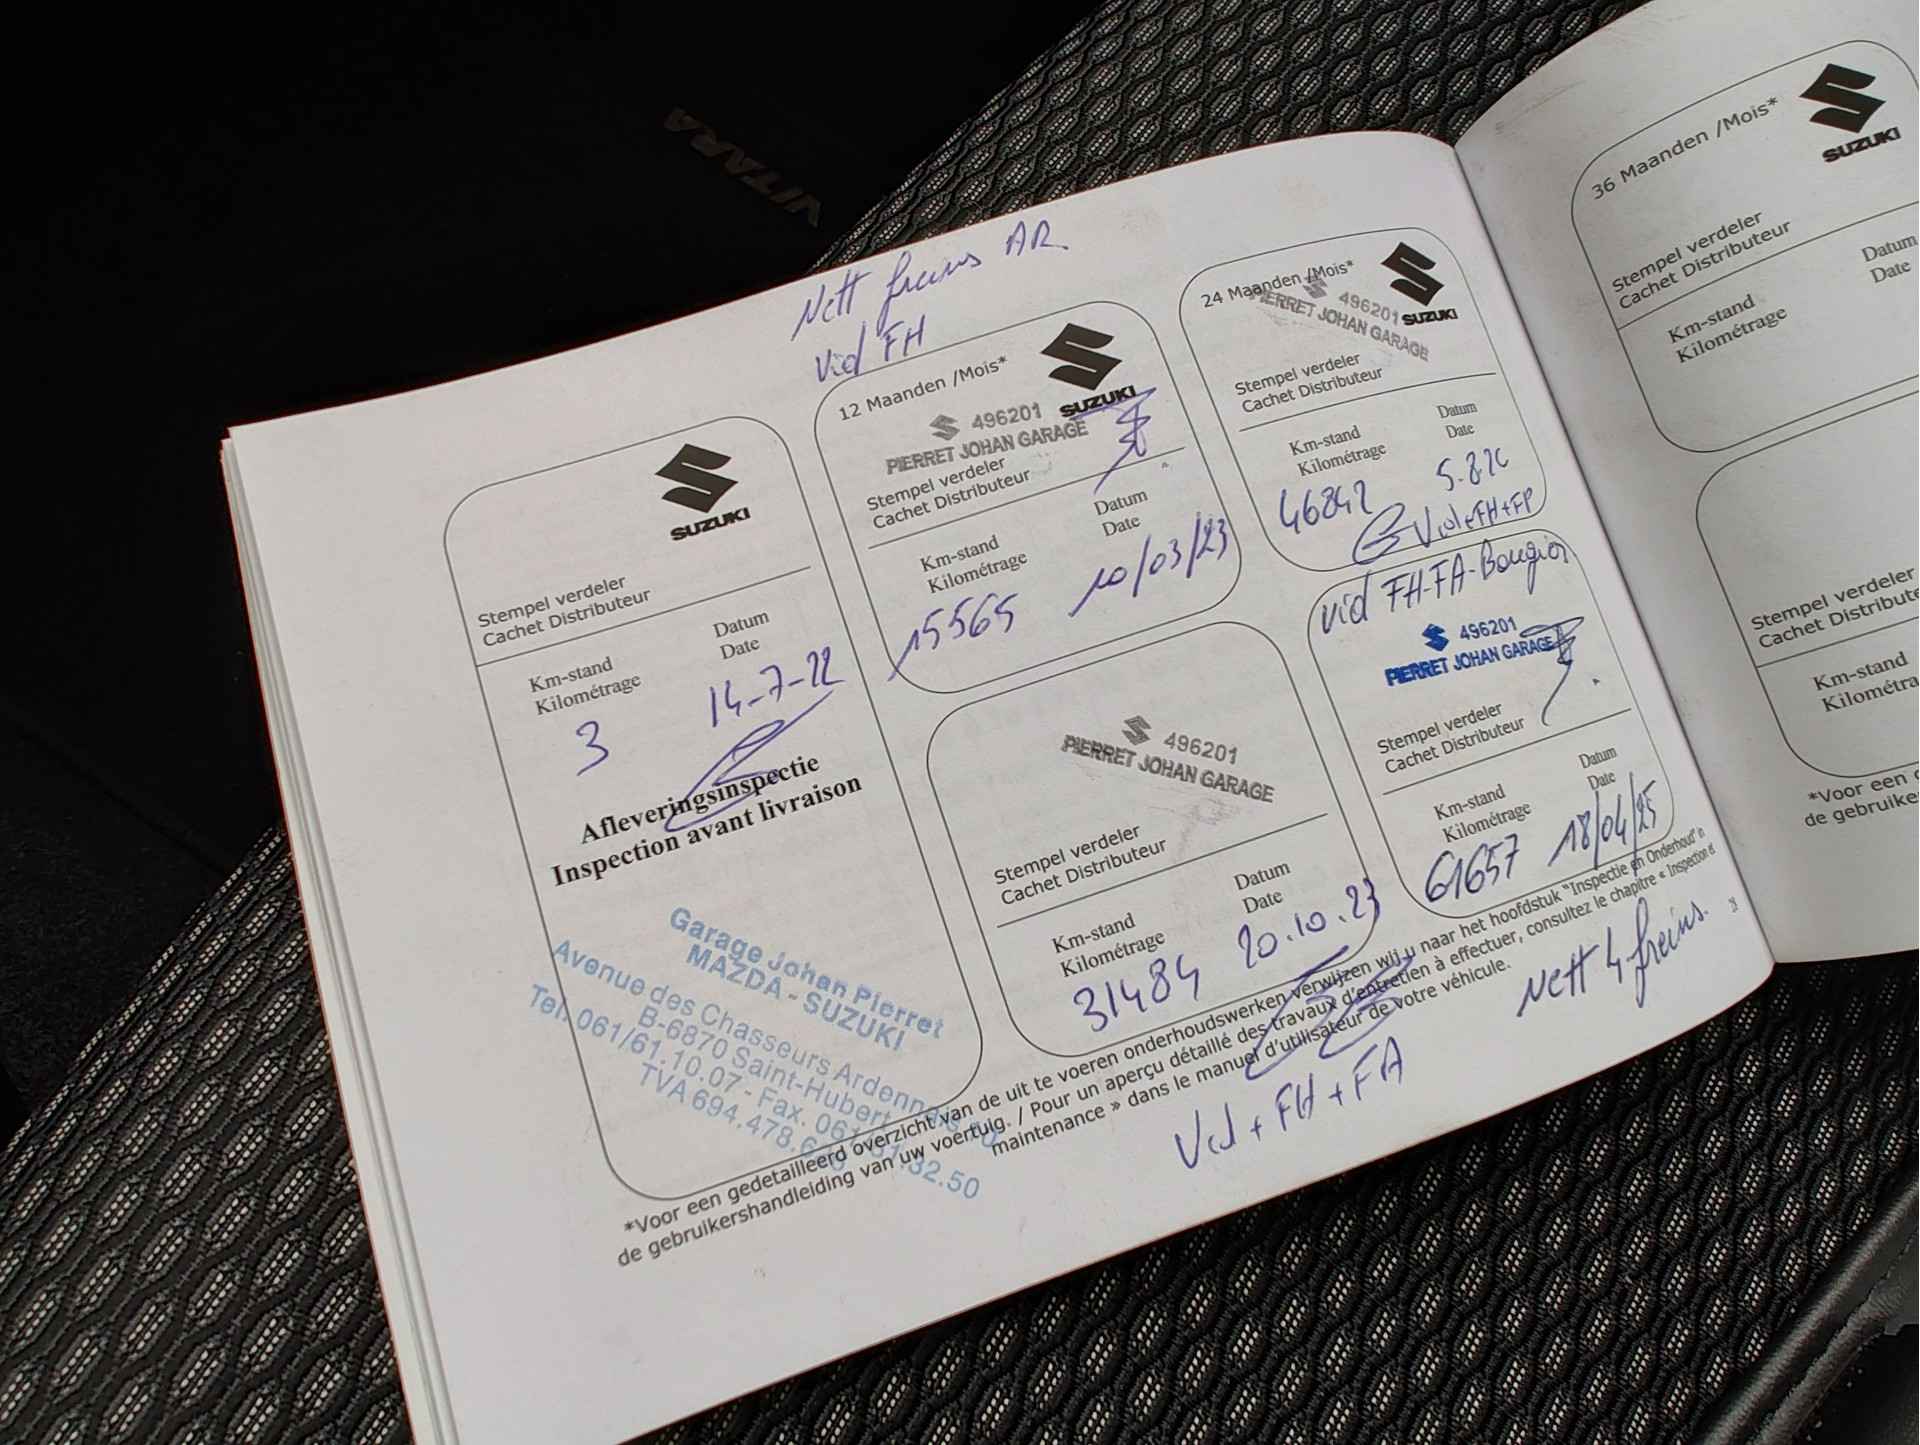 VITARA
Nett freins AR
Vid FH
SUZUKI
Stempel verdeler
Cachet Distributeur
Km-stand
Kilométrage
Datum
Date
3
14-7-22
Afleveringsinspectie
Inspection avant livraison
Garage Johan Pierret
MAZDA - SUZUKI
Avenue des Chasseurs Ardennais
B-6870 Saint-Hubert
Tel. 061/61.10.07 - Fax.
TVA 694.478.
12 Maanden /Mois*
SUZUKI
496201
PIERRET JOHAN GARAGE
Stempel verdeler
Cachet Distributeur
Km-stand
Kilométrage
Datum
Date
15565
10/03/23
496201
PIERRET JOHAN GARAGE
Stempel verdeler
Cachet Distributeur
Km-stand
Kilométrage
Datum
Date
31484
20.10.23
Vid + FH + FA
24 Maanden /Mois*
SUZUKI
496201
PIERRET JOHAN GARAGE
Stempel verdeler
Cachet Distributeur
Km-stand
Kilométrage
Datum
Date
46242
Vid+FH+FP
vid FH-FA-Bougies
496201
PIERRET JOHAN GARAGE
Stempel verdeler
Cachet Distributeur
Km-stand
Kilométrage
Datum
Date
61657
18/04/25
Nett 4 freins.
*Voor een gedetailleerd overzicht van de uit te voeren onderhoudswerken verwijzen wij u naar het hoofdstuk "Inspectie en Onderhoud" in
de gebruikershandleiding van uw voertuig. / Pour un aperçu détaillé des travaux d'entretien à effectuer, consultez le chapitre « Inspection et
maintenance » dans le manuel d'utilisateur de votre véhicule.
36 Maanden /Mois*
SUZUKI
Stempel verdeler
Cachet Distributeur
Km-stand
Kilométrage
Datum
Date
Stempel verdeler
Cachet Distribute
Km-stand
Kilométra
*Voor een
de gebruiker